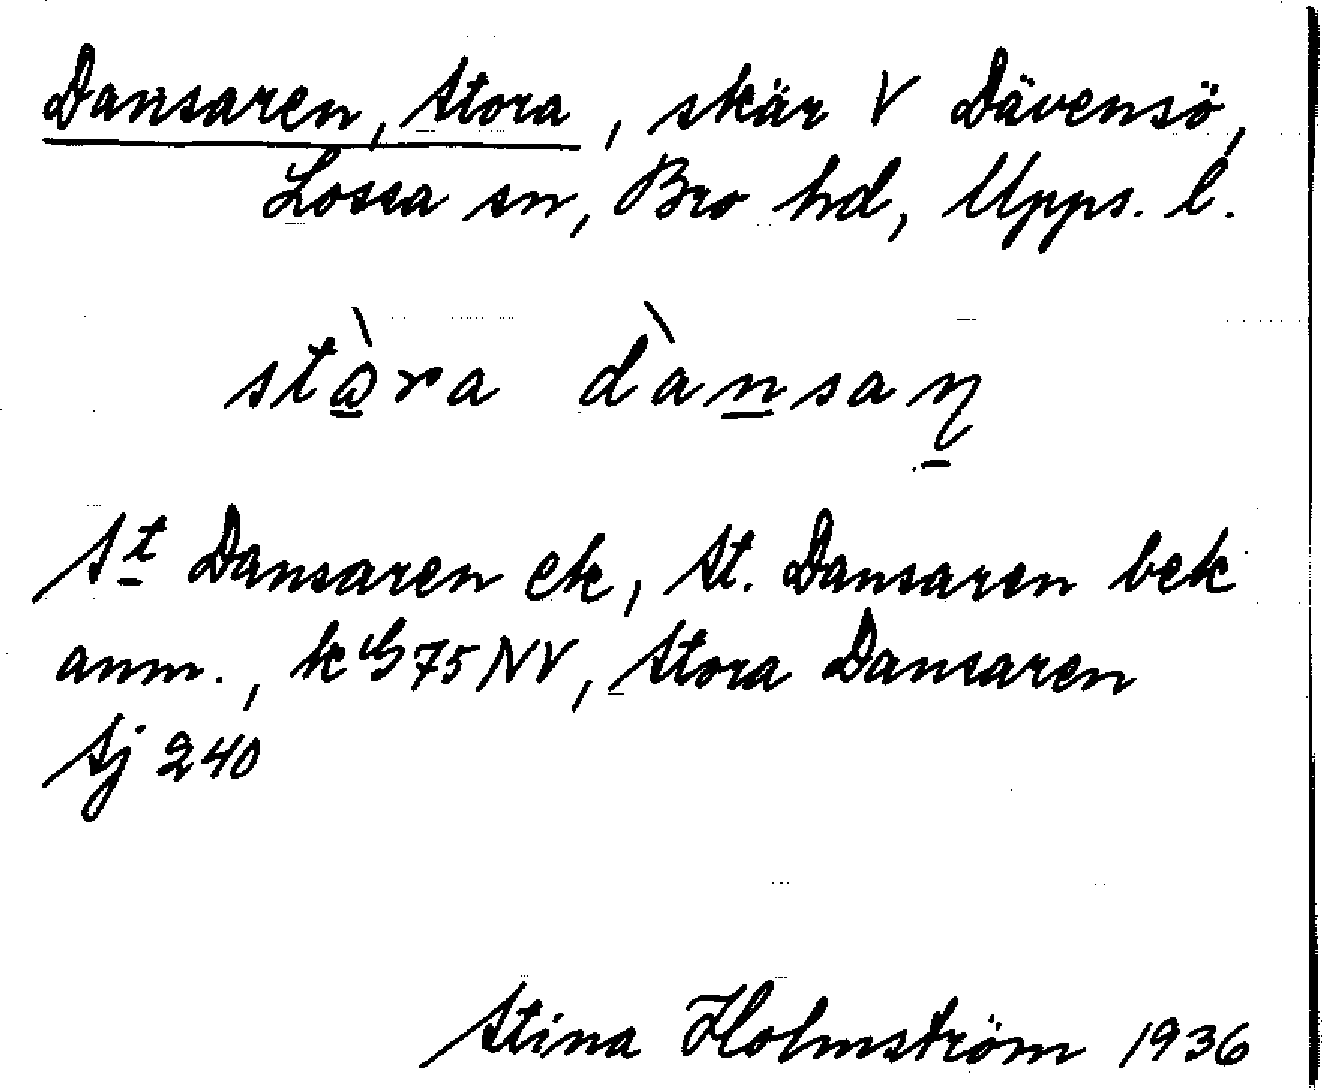 Dansaren, Stora, skär V Dävensö,
Lossa sn, Bro hd, Upps. l.
stò̲ra dàn̲saṉ
St Dansaren ek, St. Dansaren bek
anm., k G 75 NV, Stora Dansaren
Sj 240
Stina Holmström 1936